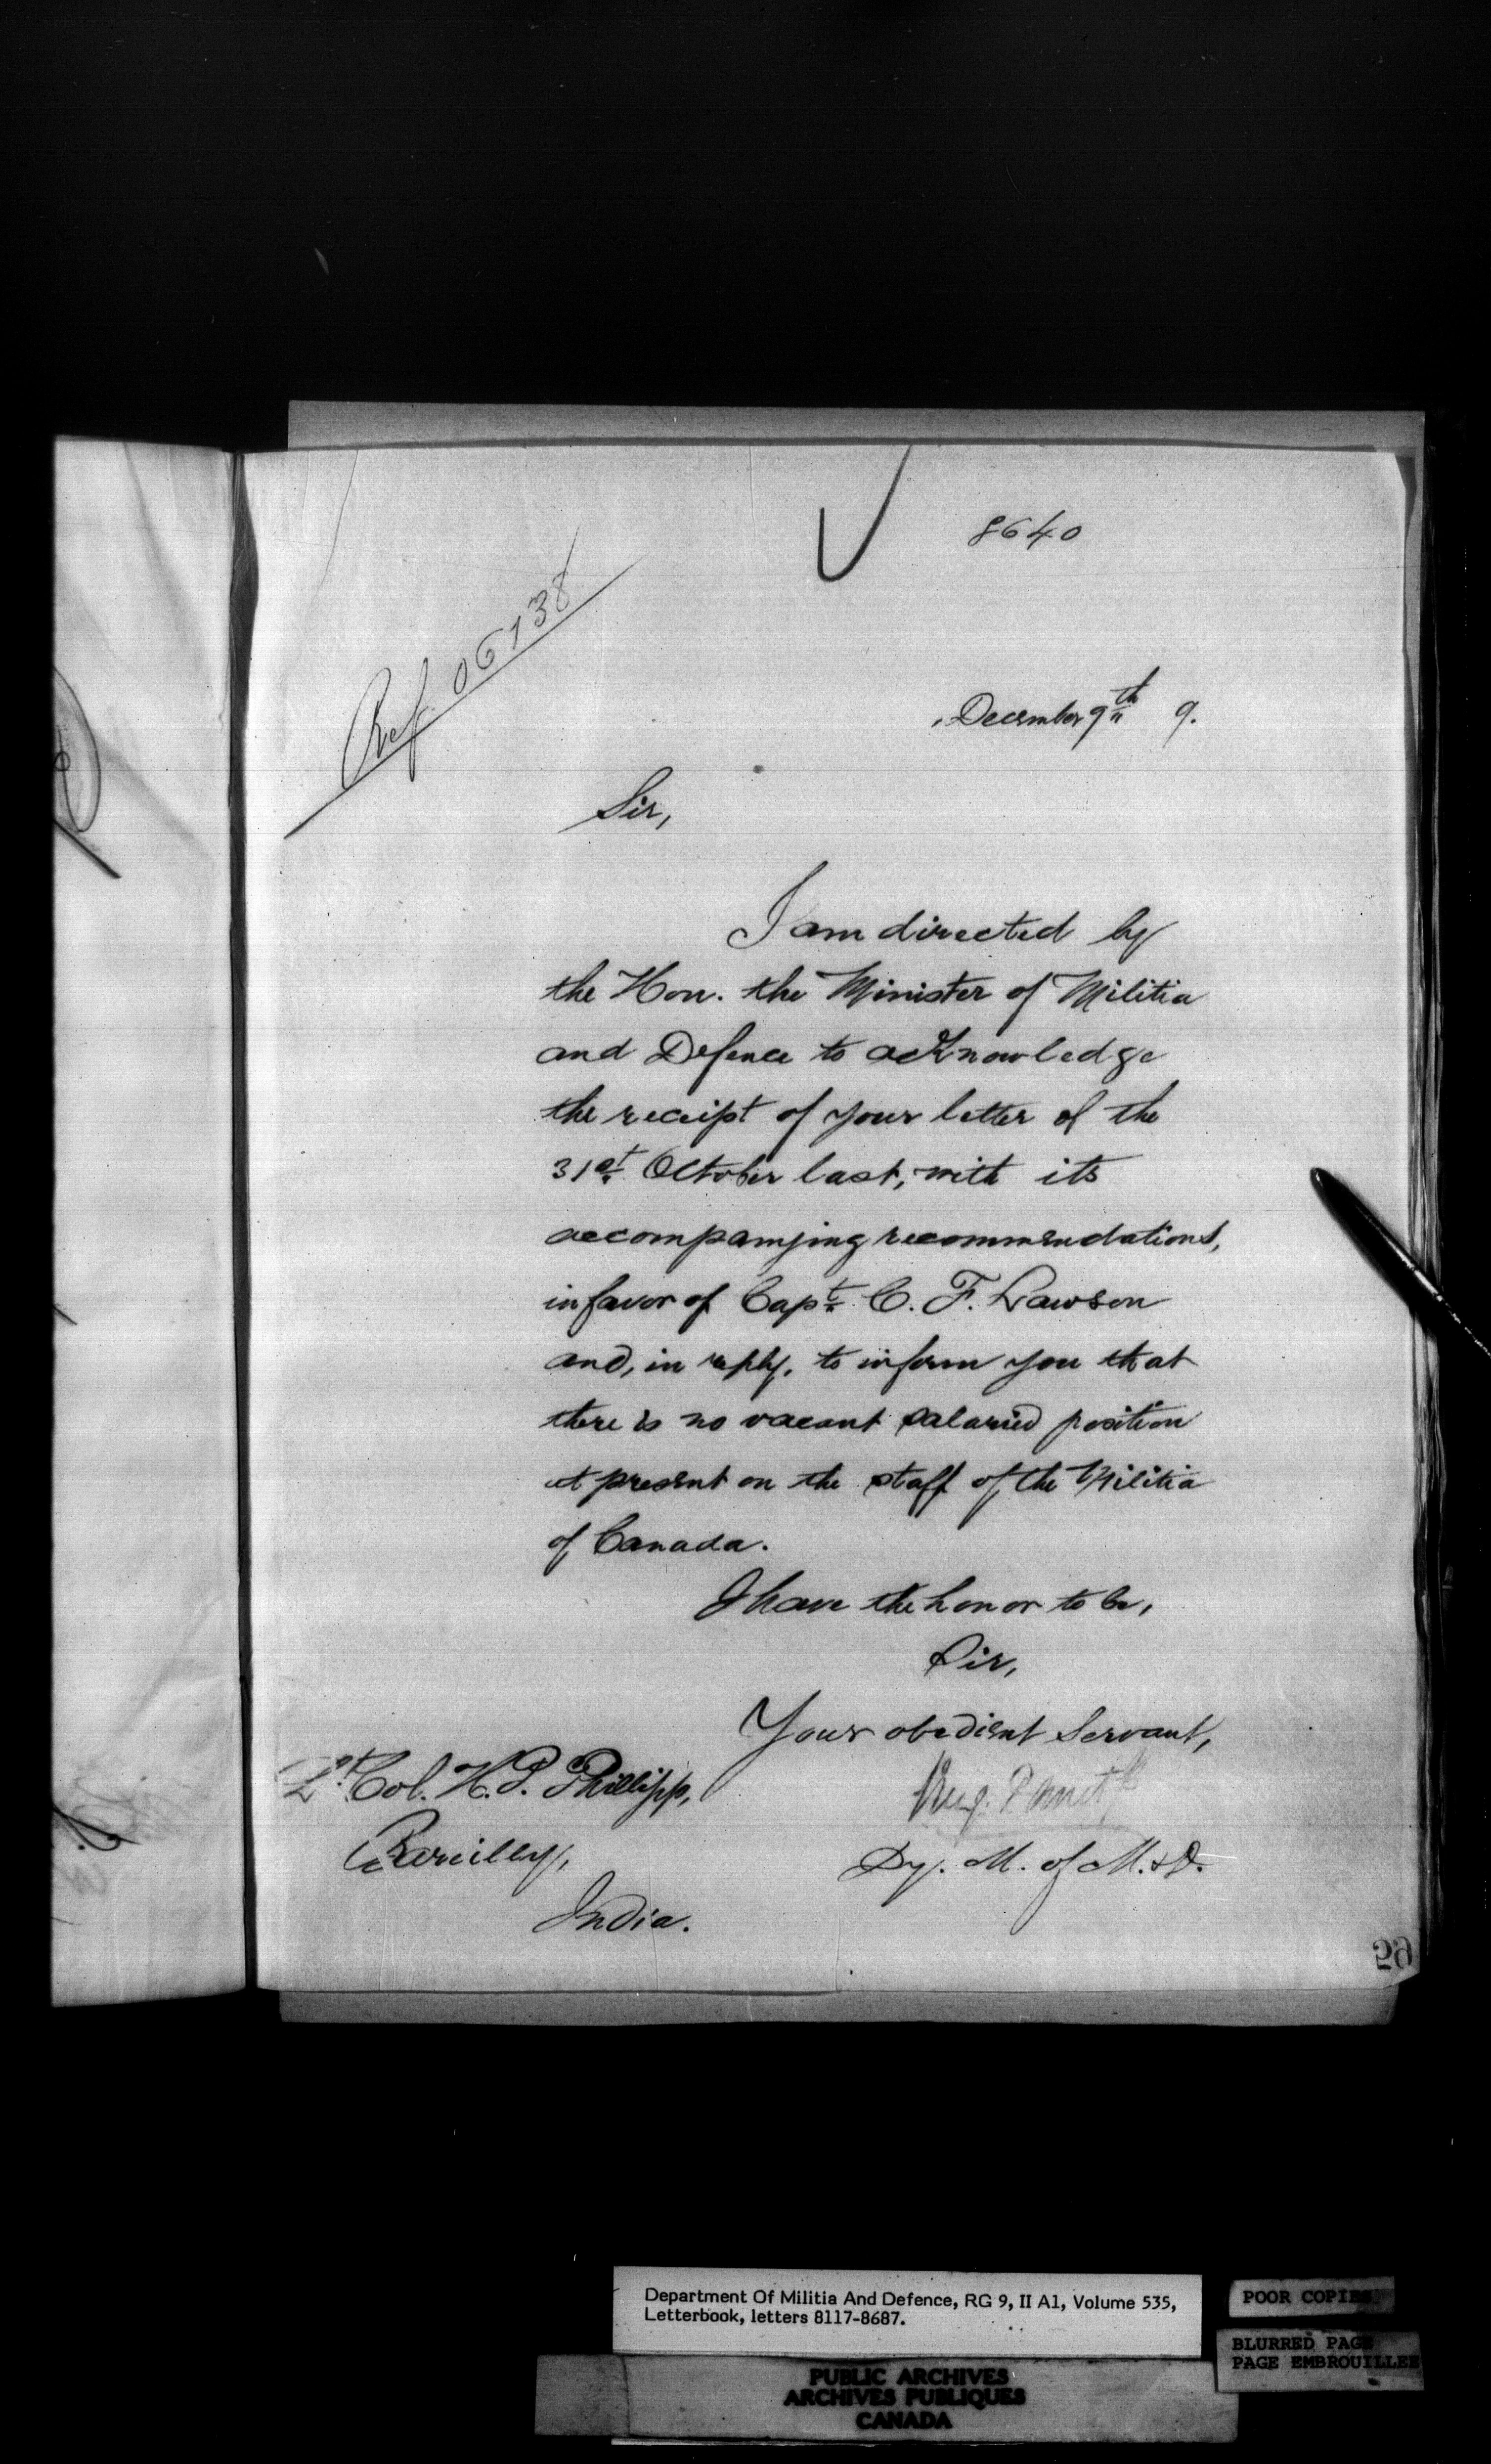 8640
Ref 06138
December 9th 9.
Sir,
I am directed by
the Hon. the Minister of Militia
and Defence to acknowledge
the receipt of your letter of the
31st October last, with its
accompanying recommendations,
in favor of Capt C. F. Lawson
and, in reply, to inform you that
there is no vacant salaried position
at present on the staff of the Militia
of Canada.
I have the honor to be,
Sir,
Your obedient Servant,
Panet
Dy. M. of M. & D.
Lt Col. H. P. Phillipp,
Bareilly,
India.
Department Of Militia And Defence, RG 9, II A1, Volume 535,
Letterbook, letters 8117-8687.
POOR COPIES
BLURRED PAGE
PAGE EMBROUILLEE
PUBLIC ARCHIVES
ARCHIVES PUBLIQUES
CANADA